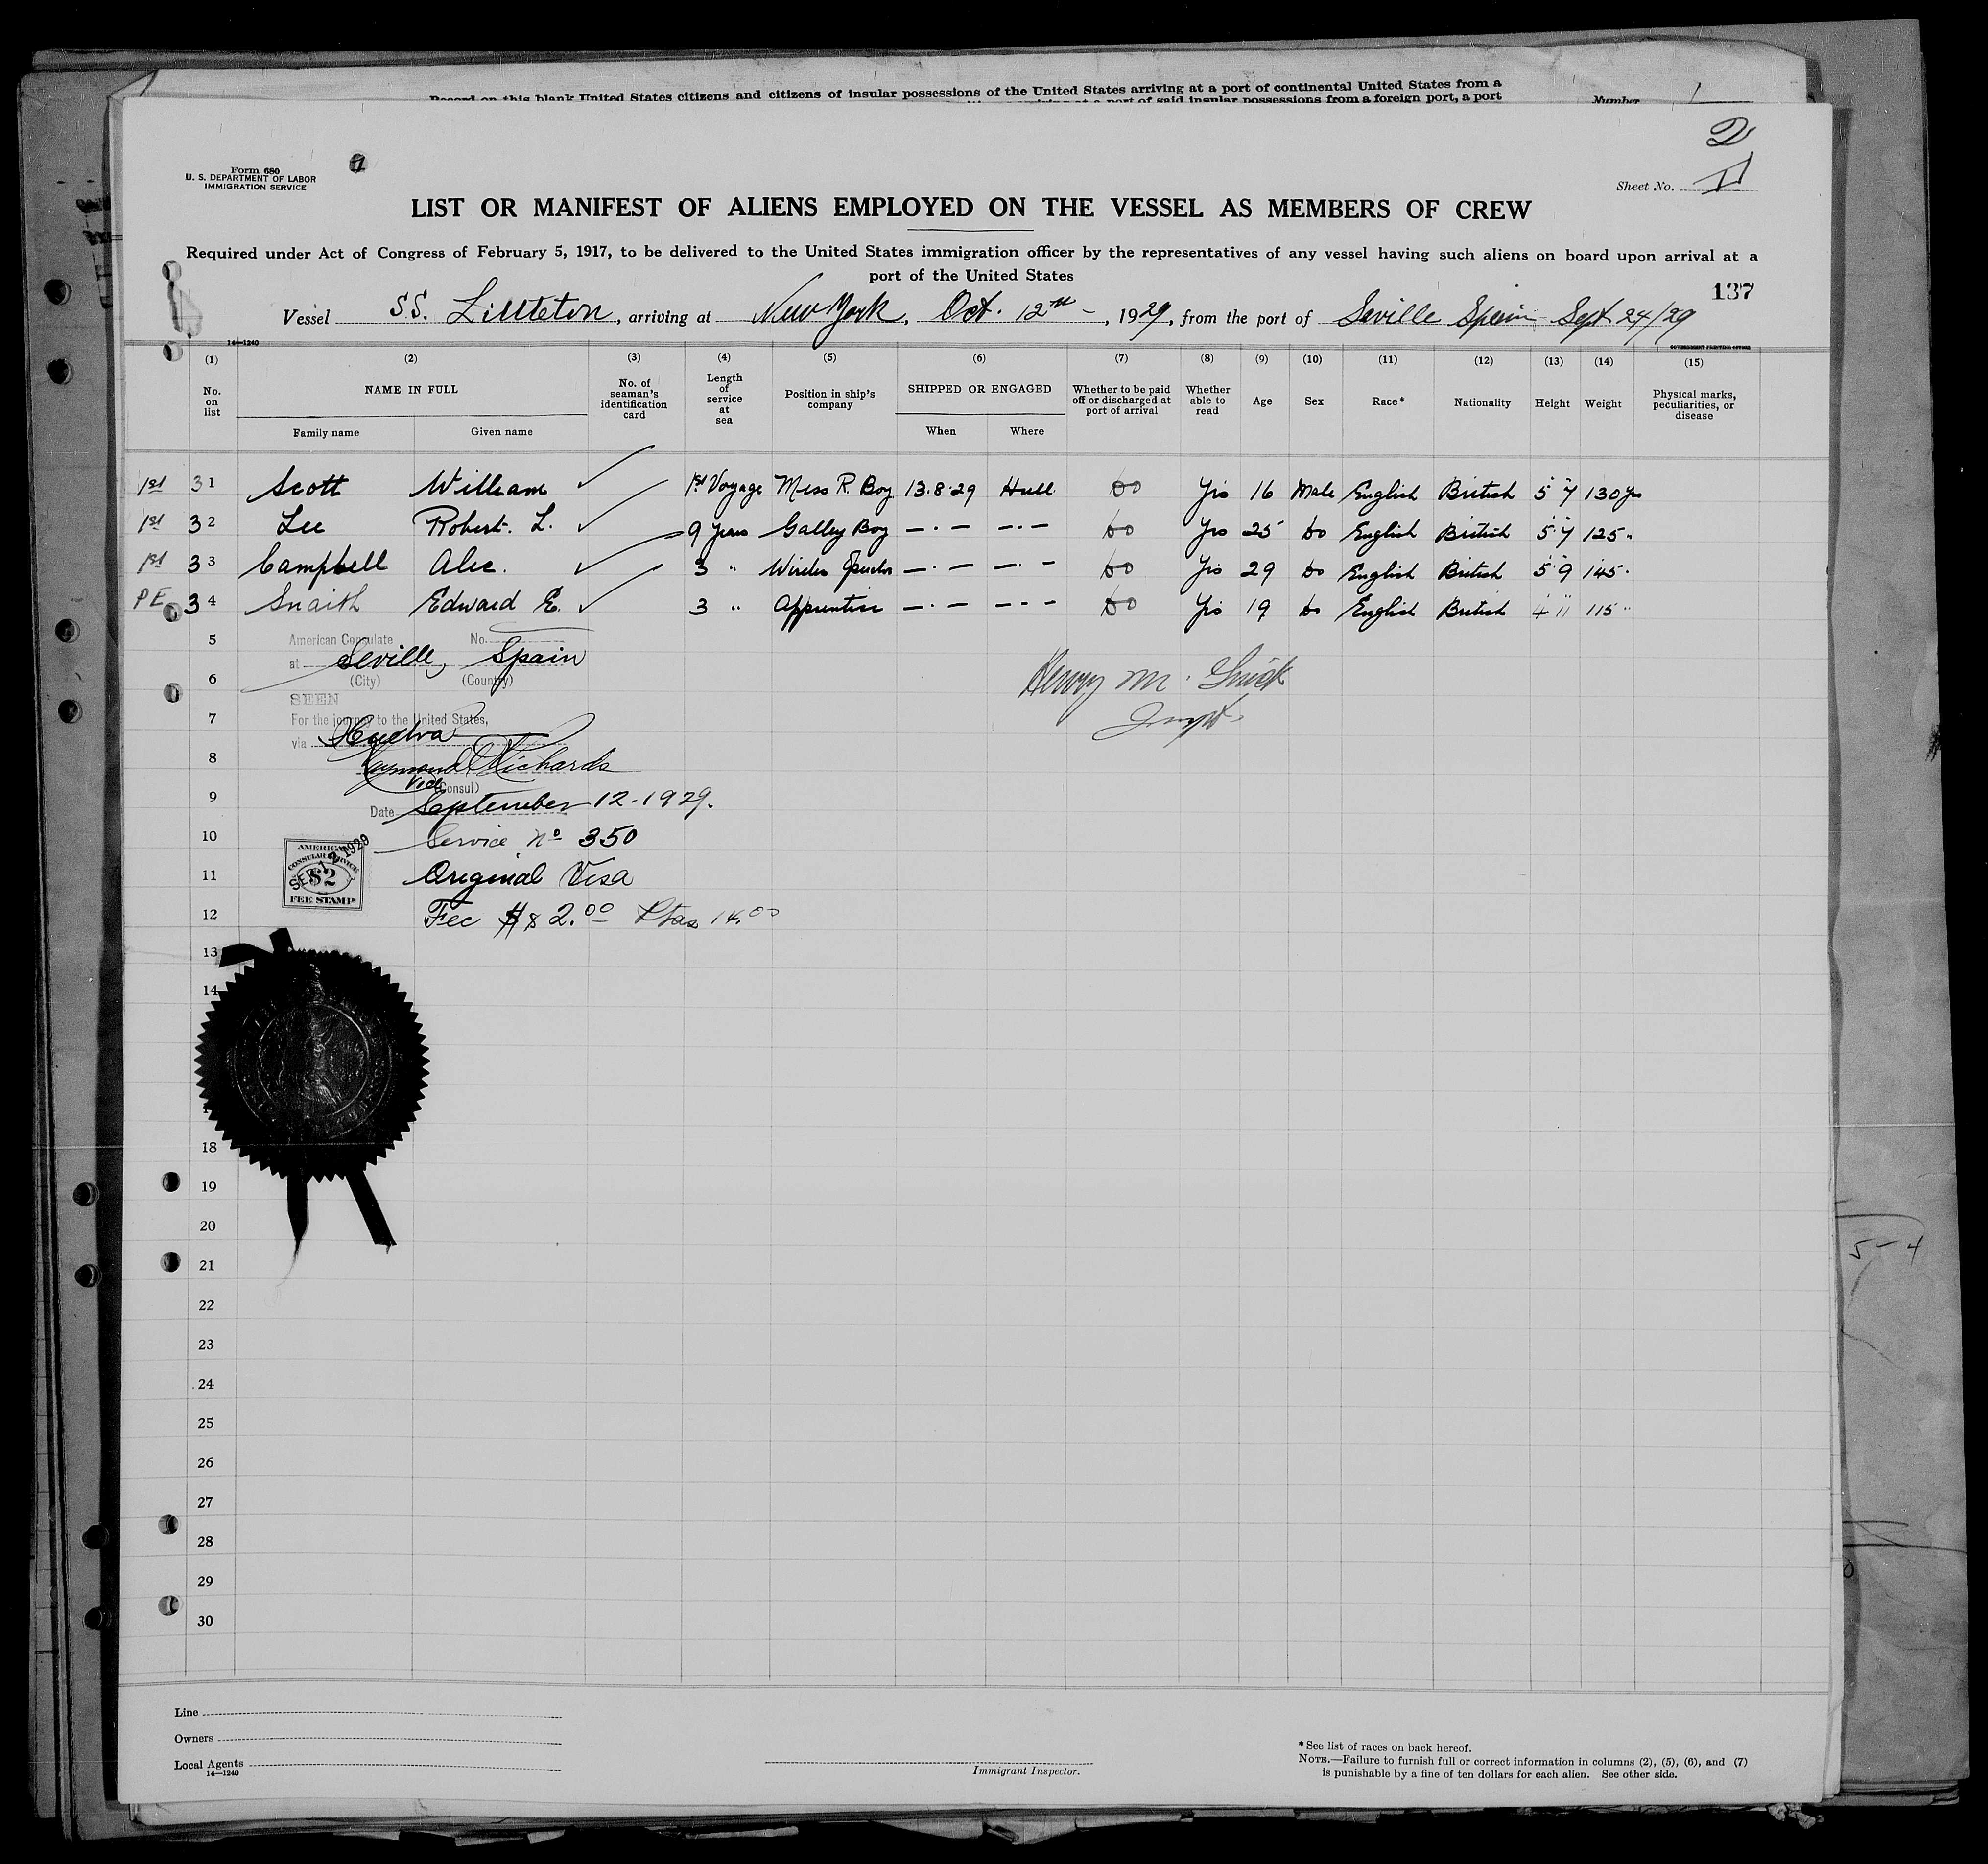 Record on this blank United States citizens and citizens of insular possessions of the United States arriving at a port of continental United States from a
at a port of said insular possessions from a foreign port, a port
Number 1
2
Form 680
U. S. DEPARTMENT OF LABOR
IMMIGRATION SERVICE
Sheet No. II
LIST OR MANIFEST OF ALIENS EMPLOYED ON THE VESSEL AS MEMBERS OF CREW
Required under Act of Congress of February 5, 1917, to be delivered to the United States immigration officer by the representatives of any vessel having such aliens on board upon arrival at a
port of the United States
137
Vessel S.S. Littleton, arriving at New York, Oct. 12th, 1929, from the port of Seville Spain Sept 24/29
14—1240
GOVERNMENT PRINTING OFFICE
(1) (2) (3) (4) (5) (6) (7) (8) (9) (10) (11) (12) (13) (14) (15)
No. on list
NAME IN FULL
Family name
Given name
No. of seaman's identification card
Length of service at sea
Position in ship's company
SHIPPED OR ENGAGED
When
Where
Whether to be paid off or discharged at port of arrival
Whether able to read
Age
Sex
Race*
Nationality
Height
Weight
Physical marks, peculiarities, or disease
1st 31 Scott William 1st Voyage Mess R. Boy 13.8.29 Hull Do Yes 16 Male English British 5" 7 130
1st 32 Lee Robert. L. 9 years Galley Boy —·— —·— Do Yes 25 Do English British 5" 7 125 "
1st 33 Campbell Alec. 3 " Wireless —·— —·— Do Yes 29 Do English British 5" 9 145 "
PE 34 Snaith Edward E. 3 " Apprentice —·— —·— Do Yes 19 Do English British 4 11 115 "
5
American Consulate No.
at Seville, Spain
6
(City) (Country)
SEEN
Henry M.
7
For the journey to the United States,
via Huelva
8
Raymond Richards
Vice (Consul)
9
Date September 12-1929.
10
Service No 350
AMERICAN CONSULAR SERVICE
$2
FEE STAMP
SEP 12 1929
11
Original Visa
12
Fee $ 2.00 Ptas 14.00
13
14
18
19
20
21
22
23
24
25
26
27
28
29
30
5-4
Line
Owners
Local Agents
14—1240
Immigrant Inspector.
* See list of races on back hereof.
NOTE.—Failure to furnish full or correct information in columns (2), (5), (6), and (7)
is punishable by a fine of ten dollars for each alien. See other side.